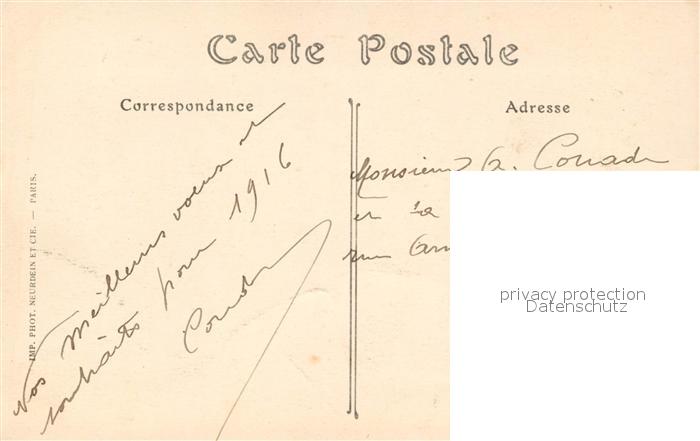 Carte Postale
Correspondance
Adresse
Nos Meilleurs voeux et
souhaits pour 1916
Monsieur G.
et sa
rue
IMP. PHOT. NEURDEIN ET CIE. — PARIS.
privacy protection
Datenschutz